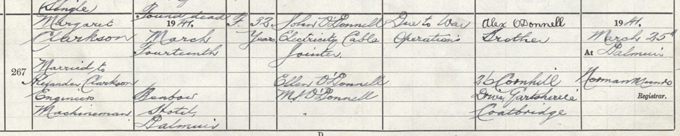 Single
Margaret
Clarkson
267
Married to
Alexander Clarkson
Engineers
Machineman
Found dead
1941.
March
Fourteenth
Benbow
Hotel
Dalmuir
F
35
Years
John O'Donnell
Electricity Cable
Jointer
Ellen O'Donnell
M.S. O'Donnell
Due to War
Operations
Alex O'Donnell
Brother
16 Coonhill
Gartsherrie
Coatbridge
1941.
March 25th
At Dalmuir
Norman
Registrar.